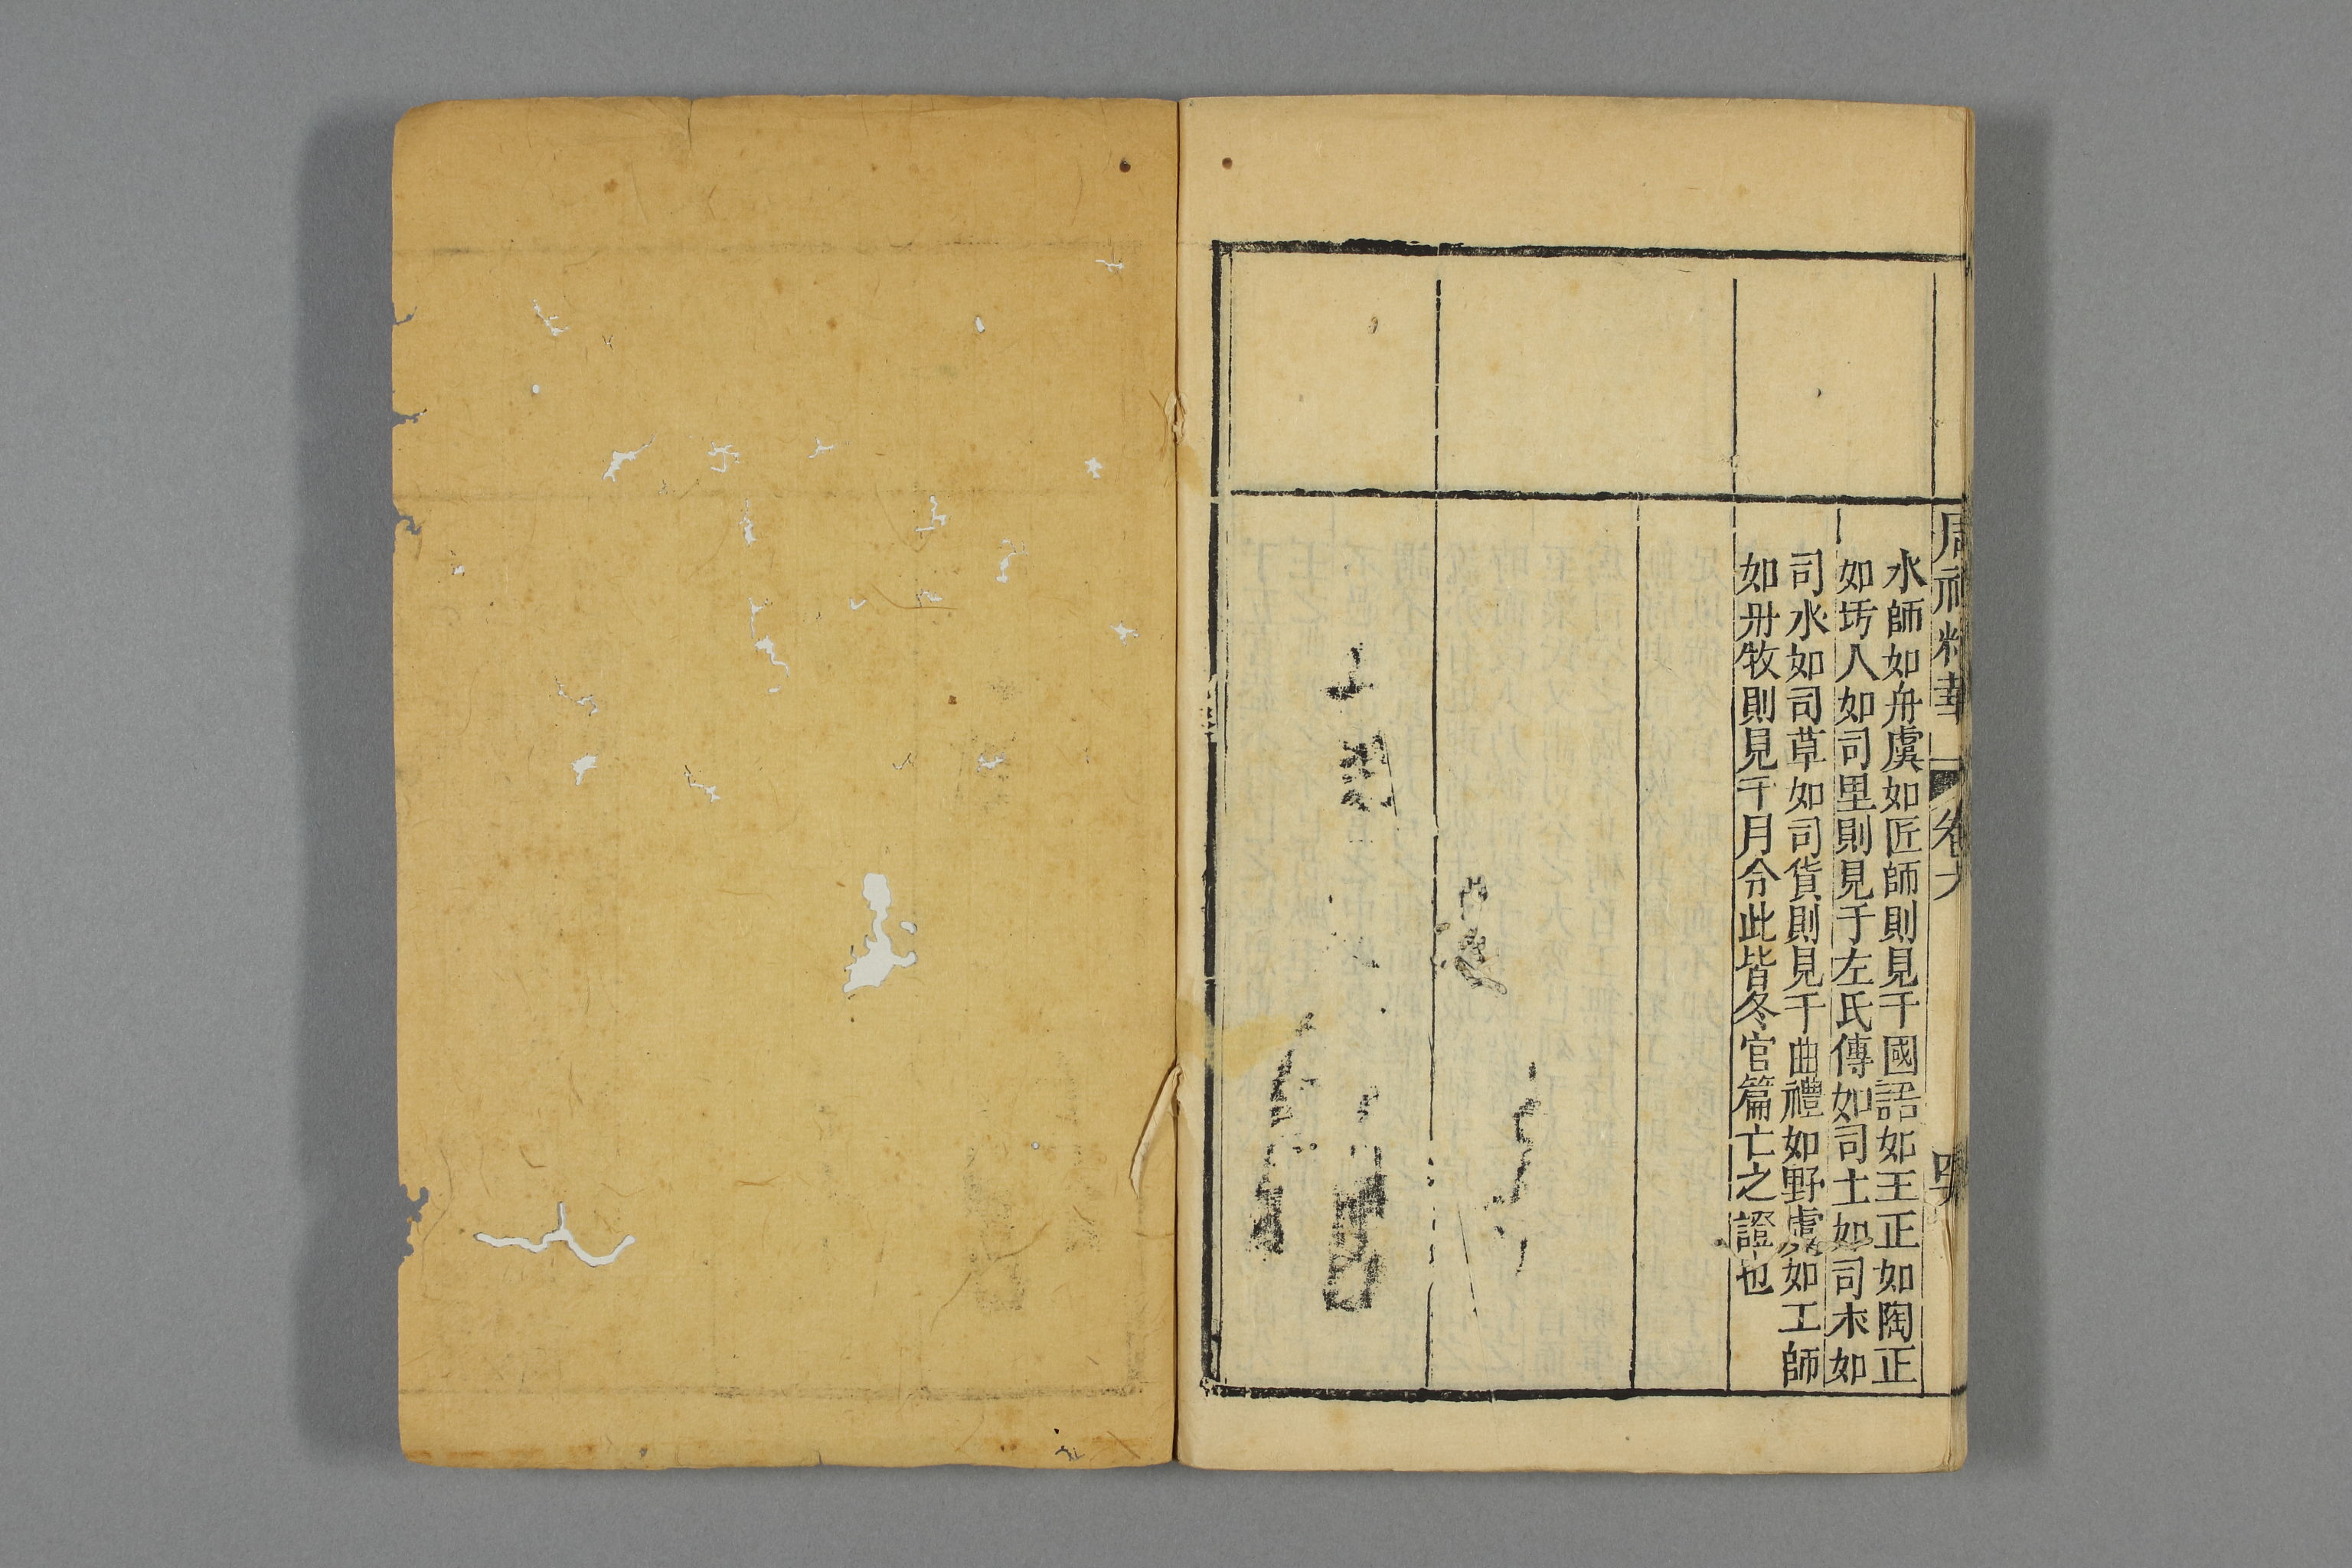 周禮精華 卷六
水師如舟虞如匠師則見于國語如王正如陶正
如圬人如司里則見于左氏傳如司土如司木如
司水如司草如司貨則見于曲禮如野虞如工師
如舟牧則見于月令此皆冬官篇亡之證也